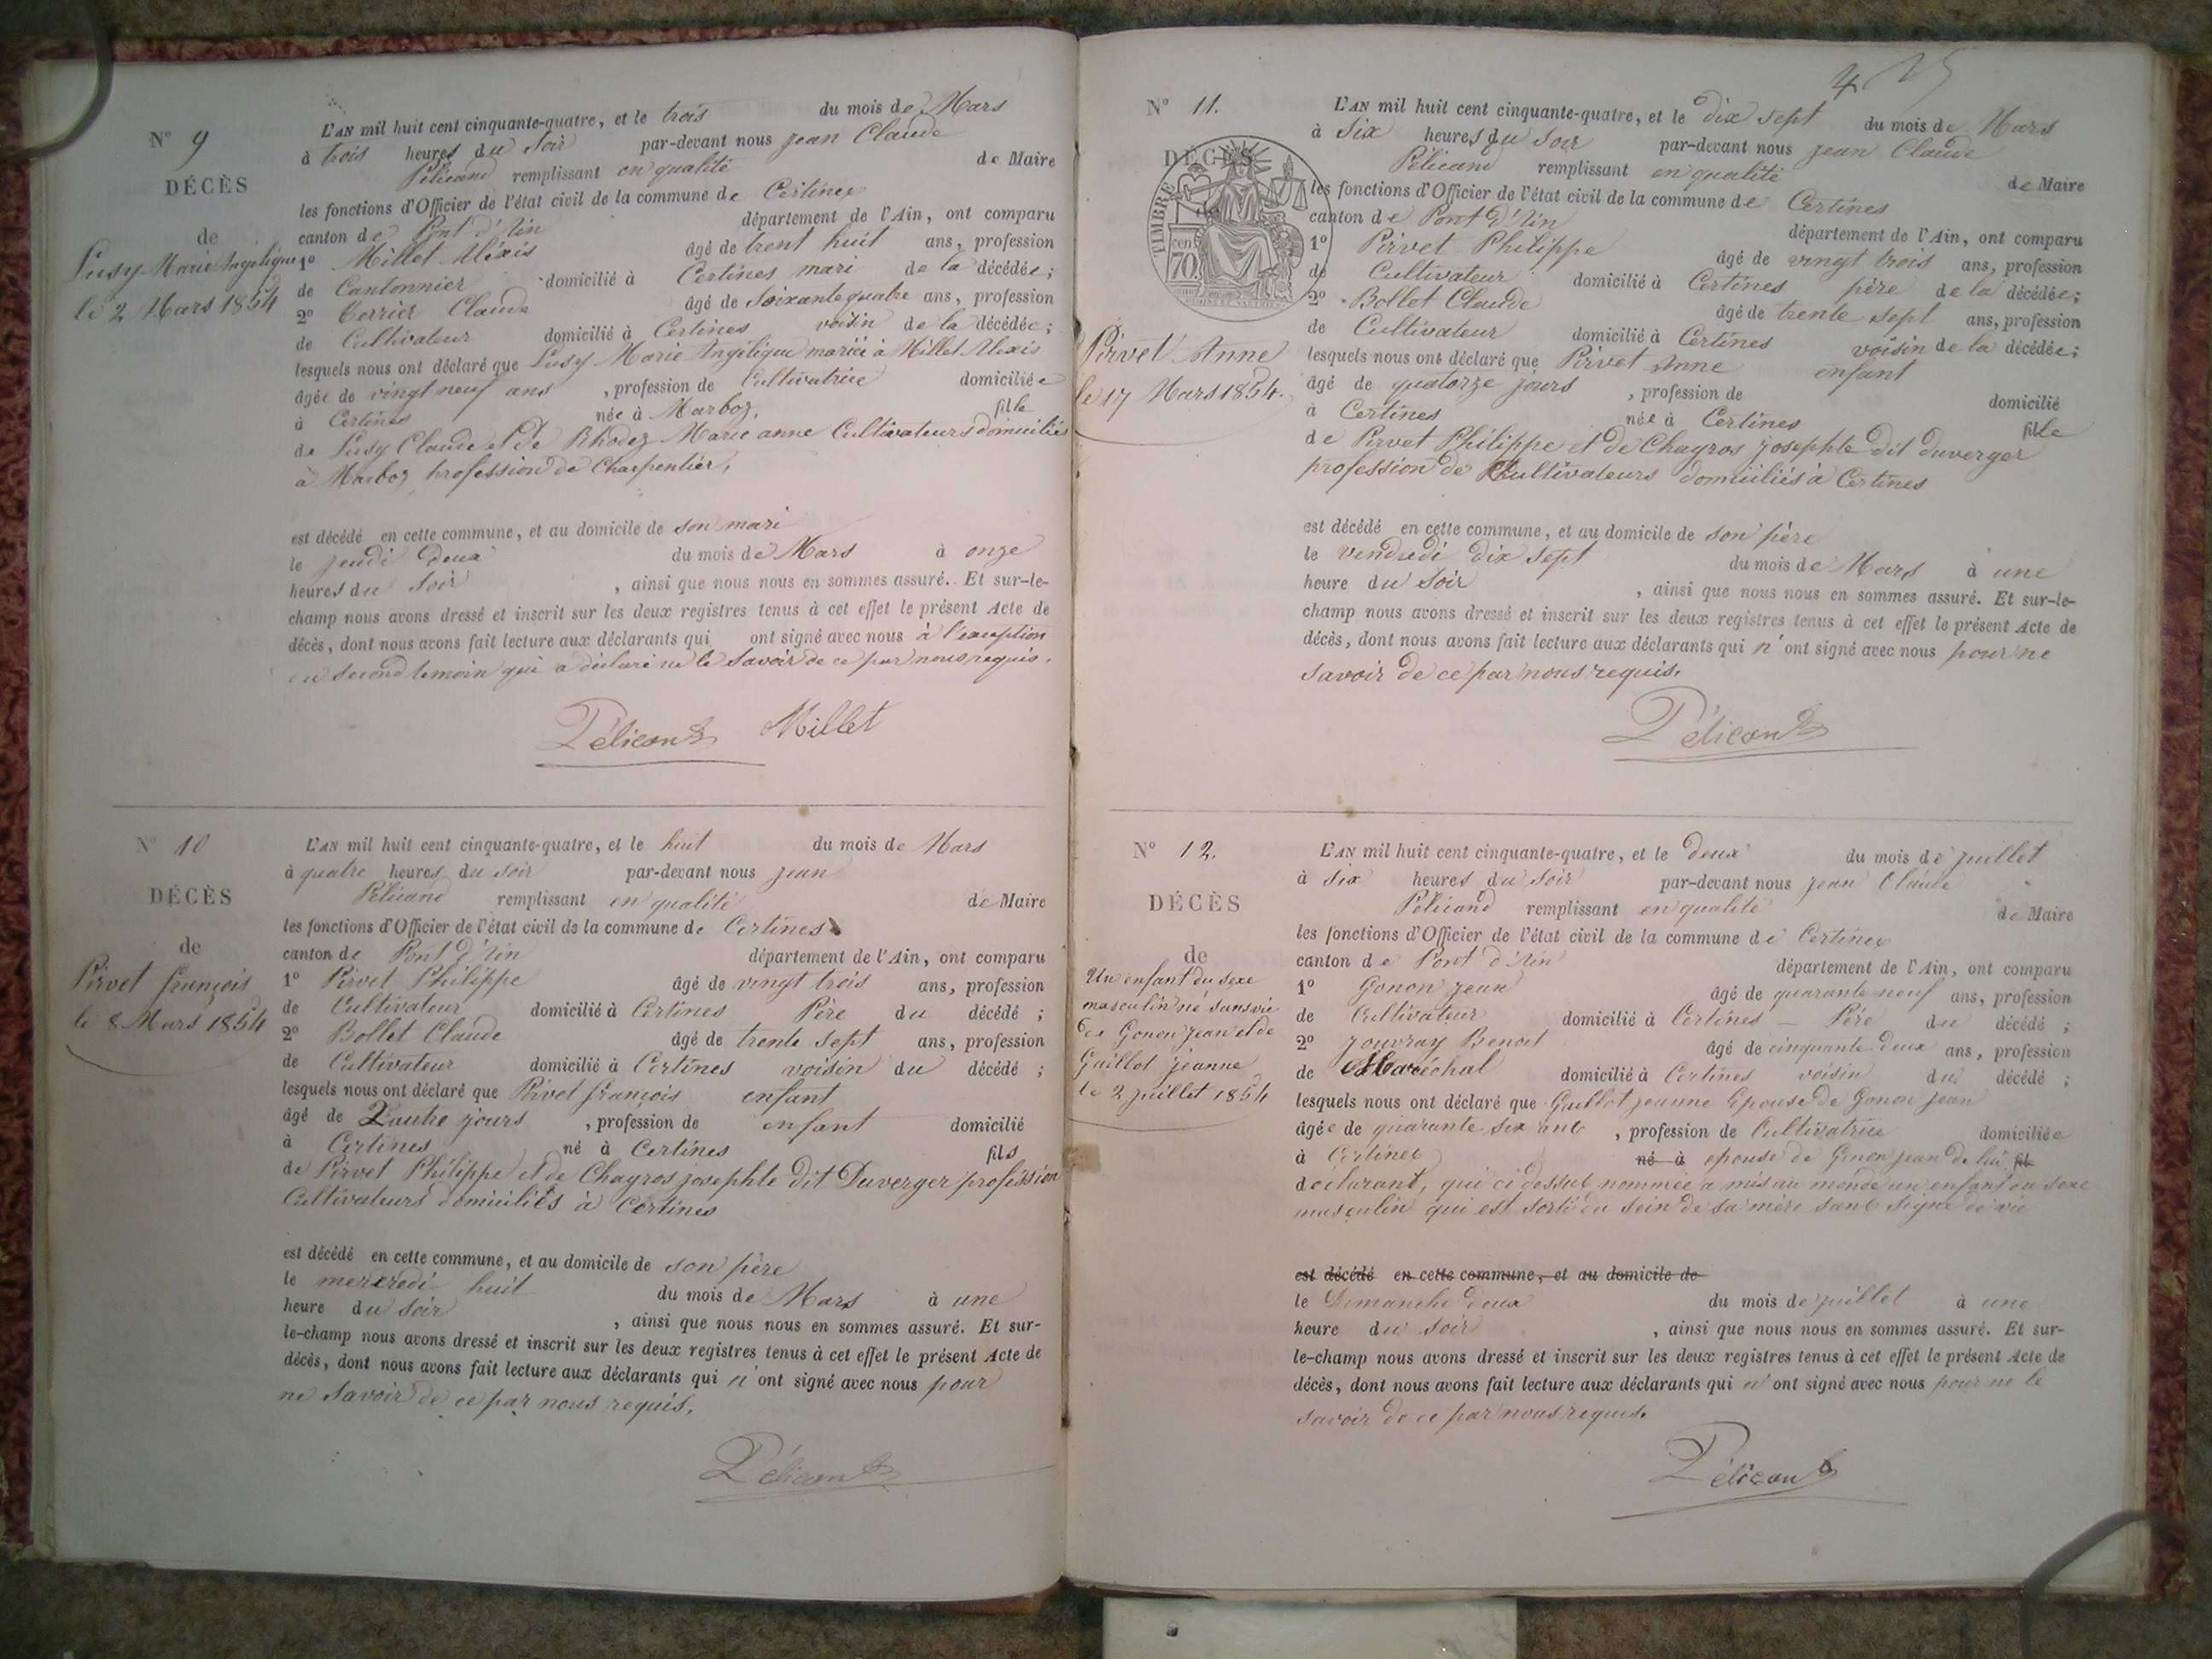 N° 9
DÉCÈS
de
Lusy Marie Angélique
le 2 Mars 1854
L'AN mil huit cent cinquante-quatre, et le trois du mois de Mars
à trois heures du soir par-devant nous jean Claude
Pélicand remplissant en qualité de Maire
les fonctions d'Officier de l'état civil de la commune de Certines
canton de Pont d'Ain département de l'Ain, ont comparu
1° Millet Aléxis âgé de trent huit ans, profession
de Cantonnier domicilié à Certines mari de la décédée;
2° Claude âgé de soixante quatre ans, profession
de Cultivateur domicilié à Certines voisin de la décédée;
lesquels nous ont déclaré que Lusy Marie Angélique mariée à Millet Alexis
âgée de vingt neuf ans, profession de Cultivatrice domiciliée
à Certines née à Marboz, fille
de Lusy Claude et de Rhodez Marie anne Cultivateurs domiciliés
à Marboz profession de Charpentier,
est décédé en cette commune, et au domicile de son mari
le jeudi deux du mois de Mars à onze
heures du soir, ainsi que nous nous en sommes assuré. Et sur-le-
champ nous avons dressé et inscrit sur les deux registres tenus à cet effet le présent Acte de
décès, dont nous avons fait lecture aux déclarants qui ont signé avec nous à l'exception
du second temoin qui a déclaré ne le savoir de ce par nous requis.
Pélicand Millet
N° 10
DÉCÈS
de
Pirvet françois
le 8 Mars 1854
L'AN mil huit cent cinquante-quatre, et le huit du mois de Mars
à quatre heures du soir par-devant nous jean
Pélicand remplissant en qualité de Maire
les fonctions d'Officier de l'état civil de la commune de Certines
canton de Pont d'Ain département de l'Ain, ont comparu
1° Pirvet Philippe âgé de vingt trois ans, profession
de Cultivateur domicilié à Certines Père du décédé;
2° Bollet Claude âgé de trente sept ans, profession
de Cultivateur domicilié à Certines voisin du décédé;
lesquels nous ont déclaré que Pirvet françois enfant
âgé de jours, profession de enfant domicilié
à Certines né à Certines fils
de Pirvet Philippe et de Chagros josephte dit Duverger profession
Cultivateurs domiciliés à Certines
est décédé en cette commune, et au domicile de son père
le mercredi huit du mois de Mars à une
heure du soir, ainsi que nous nous en sommes assuré. Et sur-
le-champ nous avons dressé et inscrit sur les deux registres tenus à cet effet le présent Acte de
décès, dont nous avons fait lecture aux déclarants qui n'ont signé avec nous pour
ne savoir de ce par nous requis.
Pélicand
4
N° 11.
DÉCÈS
TIMBRE
cen
70
Pirvet Anne
le 17 Mars 1854.
L'AN mil huit cent cinquante-quatre, et le dix sept du mois de Mars
à six heures du soir par-devant nous jean Claude
Pélicand remplissant en qualité de Maire
les fonctions d'Officier de l'état civil de la commune de Certines
canton de Pont d'Ain département de l'Ain, ont comparu
1° Pirvet Philippe âgé de vingt trois ans, profession
de Cultivateur domicilié à Certines père de la décédée;
2° Bollet Claude âgé de trente sept ans, profession
de Cultivateur domicilié à Certines voisin de la décédée;
lesquels nous ont déclaré que Pirvet Anne enfant
âgé de quatorze jours, profession de domicilié
à Certines née à Certines fille
de Pirvet Philippe et de Chagros josephte dit duverger
profession de Cultivateurs domiciliés à Certines
est décédé en cette commune, et au domicile de son père
le vendredi dix sept du mois de Mars à une
heure du soir, ainsi que nous nous en sommes assuré. Et sur-le-
champ nous avons dressé et inscrit sur les deux registres tenus à cet effet le présent Acte de
décès, dont nous avons fait lecture aux déclarants qui n'ont signé avec nous pour ne
savoir de ce par nous requis.
Pélicand
N° 12.
DÉCÈS
de
Un enfant du sexe
masculin né sans vie
de Gonon jean et de
Gaillot jeanne
le 2 juillet 1854
L'AN mil huit cent cinquante-quatre, et le deux du mois de juillet
à six heures du soir par-devant nous jean Claude
Pélicand remplissant en qualité de Maire
les fonctions d'Officier de l'état civil de la commune de Certines
canton de Pont d'Ain département de l'Ain, ont comparu
1° Gonon jean âgé de quarante neuf ans, profession
de Cultivateur domicilié à Certines – Père du décédé;
2° jouvray Benoit âgé de cinquante deux ans, profession
de Maréchal domicilié à Certines voisin du décédé;
lesquels nous ont déclaré que Gaillot jeanne Epouse de Gonon jean
âgée de quarante six ans, profession de Cultivatrice domiciliée
à Certines né à epouse de Gonon jean de lui fil
déclarant, qui ci dessus nommée a mis au monde un enfant du sexe
masculin qui est sorti du sein de sa mère sans signe de vie
est décédé en cette commune, et au domicile de
le Dimanche deux du mois de juillet à une
heure du soir, ainsi que nous nous en sommes assuré. Et sur-
le-champ nous avons dressé et inscrit sur les deux registres tenus à cet effet le présent Acte de
décès, dont nous avons fait lecture aux déclarants qui n'ont signé avec nous pour ne le
savoir de ce par nous requis.
Pélicand